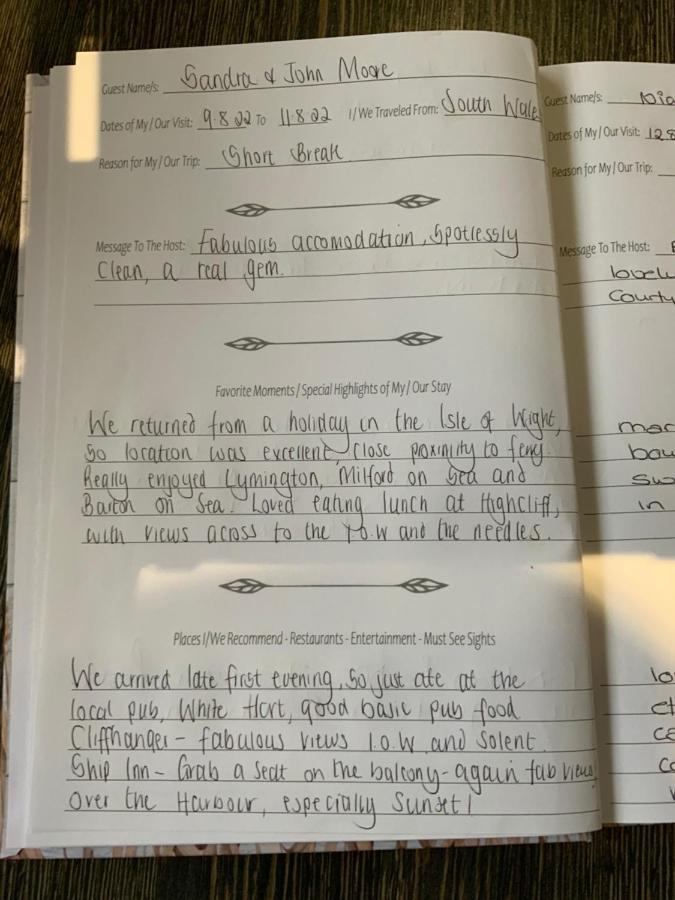 Guest Name/s: Sandra & John Moore
Dates of My / Our Visit: 9.8.22 To 11.8.22 I / We Traveled From: South Wale
Reason for My / Our Trip: Short Break
Message To The Host: Fabulous accomodation, Spotlessly
Clean, a real gem.
Favorite Moments / Special Highlights of My / Our Stay
We returned from a holiday in the Isle of Wight,
So location was excellent, Close proximity to ferry.
Really enjoyed Lymington, Milford on Sea and
Barton on Sea. Loved eating lunch at Highcliff,
with views across to the I.O.W and the needles.
Places I/We Recommend - Restaurants - Entertainment - Must See Sights
We arrived late first evening, So just ate at the
local pub, White Hart, good basic pub food
Cliffhanger - fabulous views I.O.W and Solent.
Ship Inn - Grab a seat on the balcony - again fab views
Over the Harbour, especially Sunset!
Guest Name/s:
Dates of My / Our Visit: 128
Reason for My / Our Trip:
Message To The Host:
Courty
bou
Sw
in
lo
et
ce
co